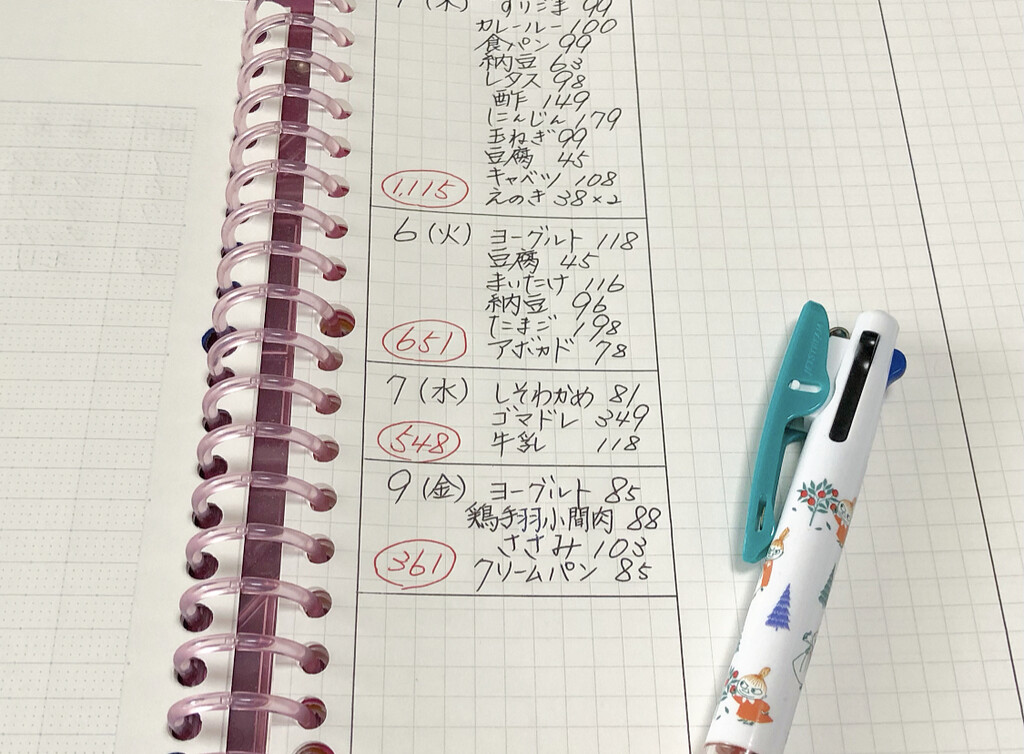 (木) すりごま 99
カレールー 100
食パン 99
納豆 63
レタス 98
酢 149
にんじん 179
玉ねぎ 99
豆腐 45
キャベツ 108
1,115 えのき 38×2
6 (火) ヨーグルト 118
豆腐 45
まいたけ 116
納豆 96
たまご 198
651 アボカド 78
7 (水) しそわかめ 81
ゴマドレ 349
548 牛乳 118
9 (金) ヨーグルト 85
鶏手羽小間肉 88
ささみ 103
361 クリームパン 85